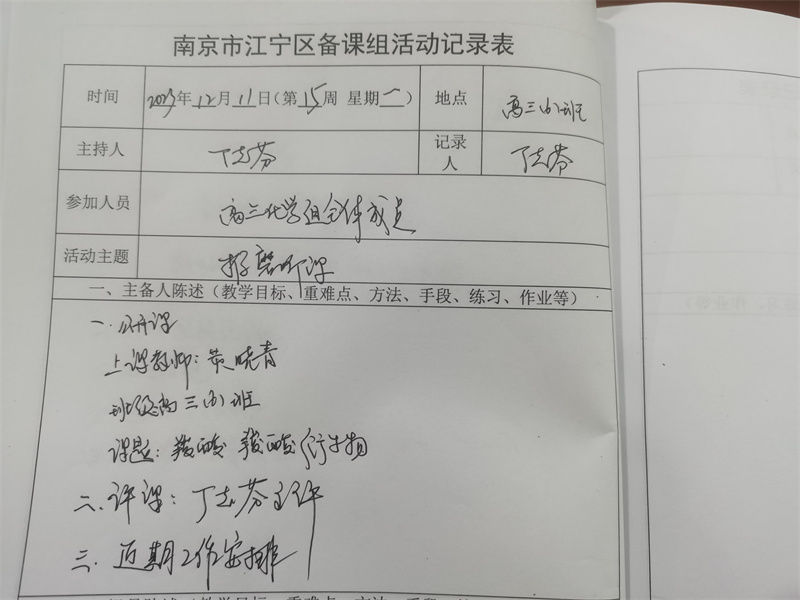 南京市江宁区备课组活动记录表
时间 2023年12月11日(第15周 星期一) 地点 高三(6)班
主持人 丁志芬 记录人 丁志芬
参加人员 高三化学组全体成员
活动主题 听课
一、主备人陈述(教学目标、重难点、方法、手段、练习、作业等)
一.公开课
上课教师:黄晓青
班级:高三(6)班
课题:羧酸 羧酸衍生物
二.评课:丁志芬主评
三.近期工作安排